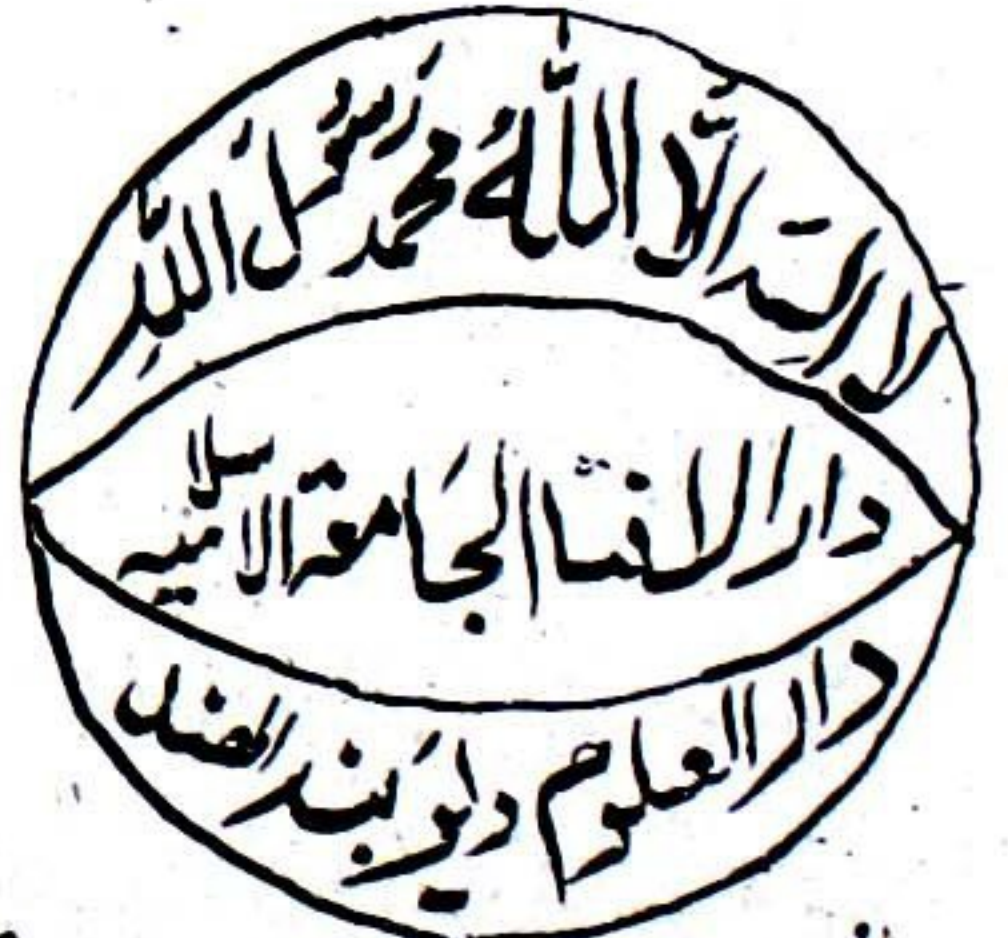 لا اِلٰہَ اِلَّا اللّٰهُ محمد رَسُوْلُ اللّٰہِ
دار الافتا الجَامعة الاسلامیہ
دار العلوم دیوبند الھند